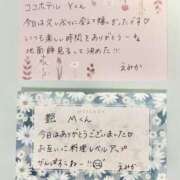 ココホテル Yくん
今日は久しぶりに会えて嬉しかったです♡
いつも楽しい時間をありがとう〜な
地面師見るって決めた!!
えみか
艶 Mくん
今日はありがとうございました♡
お互いに料理レベルアップ
がんばろうねー!!
えみか